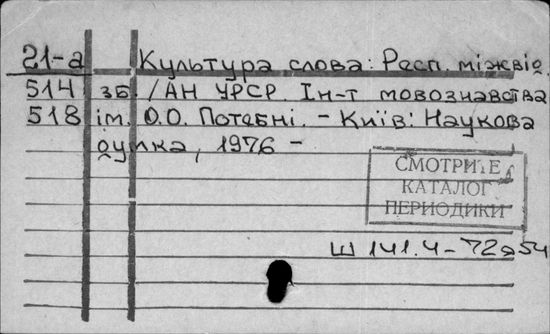 21-а Культура слова: Респ. міжвід
514 зб. / АН УРСР Ін-т мовознавства
518 ім. О.О. Потебні. - Київ: Наукова
думка, 1976 -
СМОТРИТЕ
КАТАЛОГ
ПЕРИОДИКИ
Ш 141.4-72я54